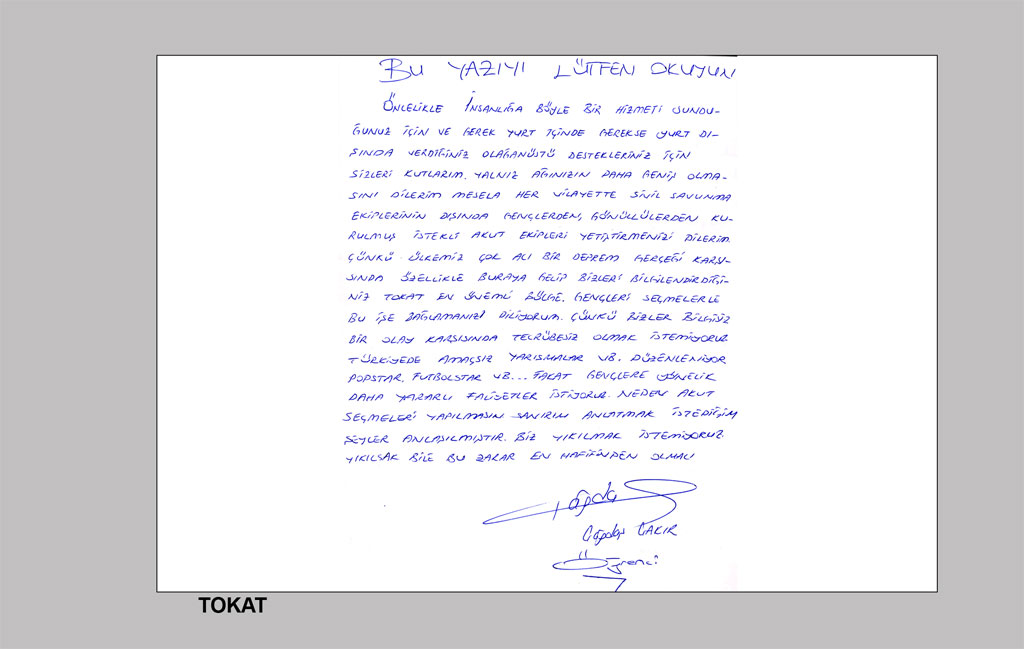 BU YAZIYI LÜTFEN OKUYUN
ÖNCELİKLE İNSANLIĞA BÖYLE BİR HİZMETİ SUNDU-
ĞUNUZ İÇİN VE GEREK YURT İÇİNDE GEREKSE YURT DI-
ŞINDA VERDİĞİNİZ OLAĞANÜSTÜ DESTEKLERİNİZ İÇİN
SİZLERİ KUTLARIM. YALNIZ AĞINIZIN DAHA GENİŞ OLMA-
SINI DİLERİM MESELA HER VİLAYETTE SİVİL SAVUNMA
EKİPLERİNİN DIŞINDA GENÇLERDEN, GÖNÜLLÜLERDEN KU-
RULMUŞ İSTEKLİ AKUT EKİPLERİ YETİŞTİRMENİZİ DİLERİM.
ÇÜNKÜ ÜLKEMİZ ÇOK ACI BİR DEPREM GERÇEĞİ KARŞI-
SINDA ÖZELLİKLE BURAYA GELİP BİZLERİ BİLGİLENDİRDİĞİ-
NİZ TOKAT EN ÖNEMLİ BÖLGE. GENÇLERİ SEÇMELERLE
BU İŞE BAĞLAMANIZI DİLİYORUM. ÇÜNKÜ BİZLER BİLGİSİZ
BİR OLAY KARŞISINDA TECRÜBESİZ OLMAK İSTEMİYORUZ
TÜRKİYEDE AMAÇSIZ YARIŞMALAR VB. DÜZENLENİYOR
POPSTAR, FUTBOLSTAR VB... FAKAT GENÇLERE YÖNELİK
DAHA YARARLI FALİYETLER İSTİYORUZ. NEDEN AKUT
SEÇMELERİ YAPILMASIN SANIRIM ANLATMAK İSTEDİĞİM
ŞEYLER ANLAŞILMIŞTIR. BİZ YIKILMAK İSTEMİYORUZ.
YIKILSAK BİLE BU ZARAR EN HAFİFİNDEN OLMALI
ÇAKIR
Öğrenci
TOKAT